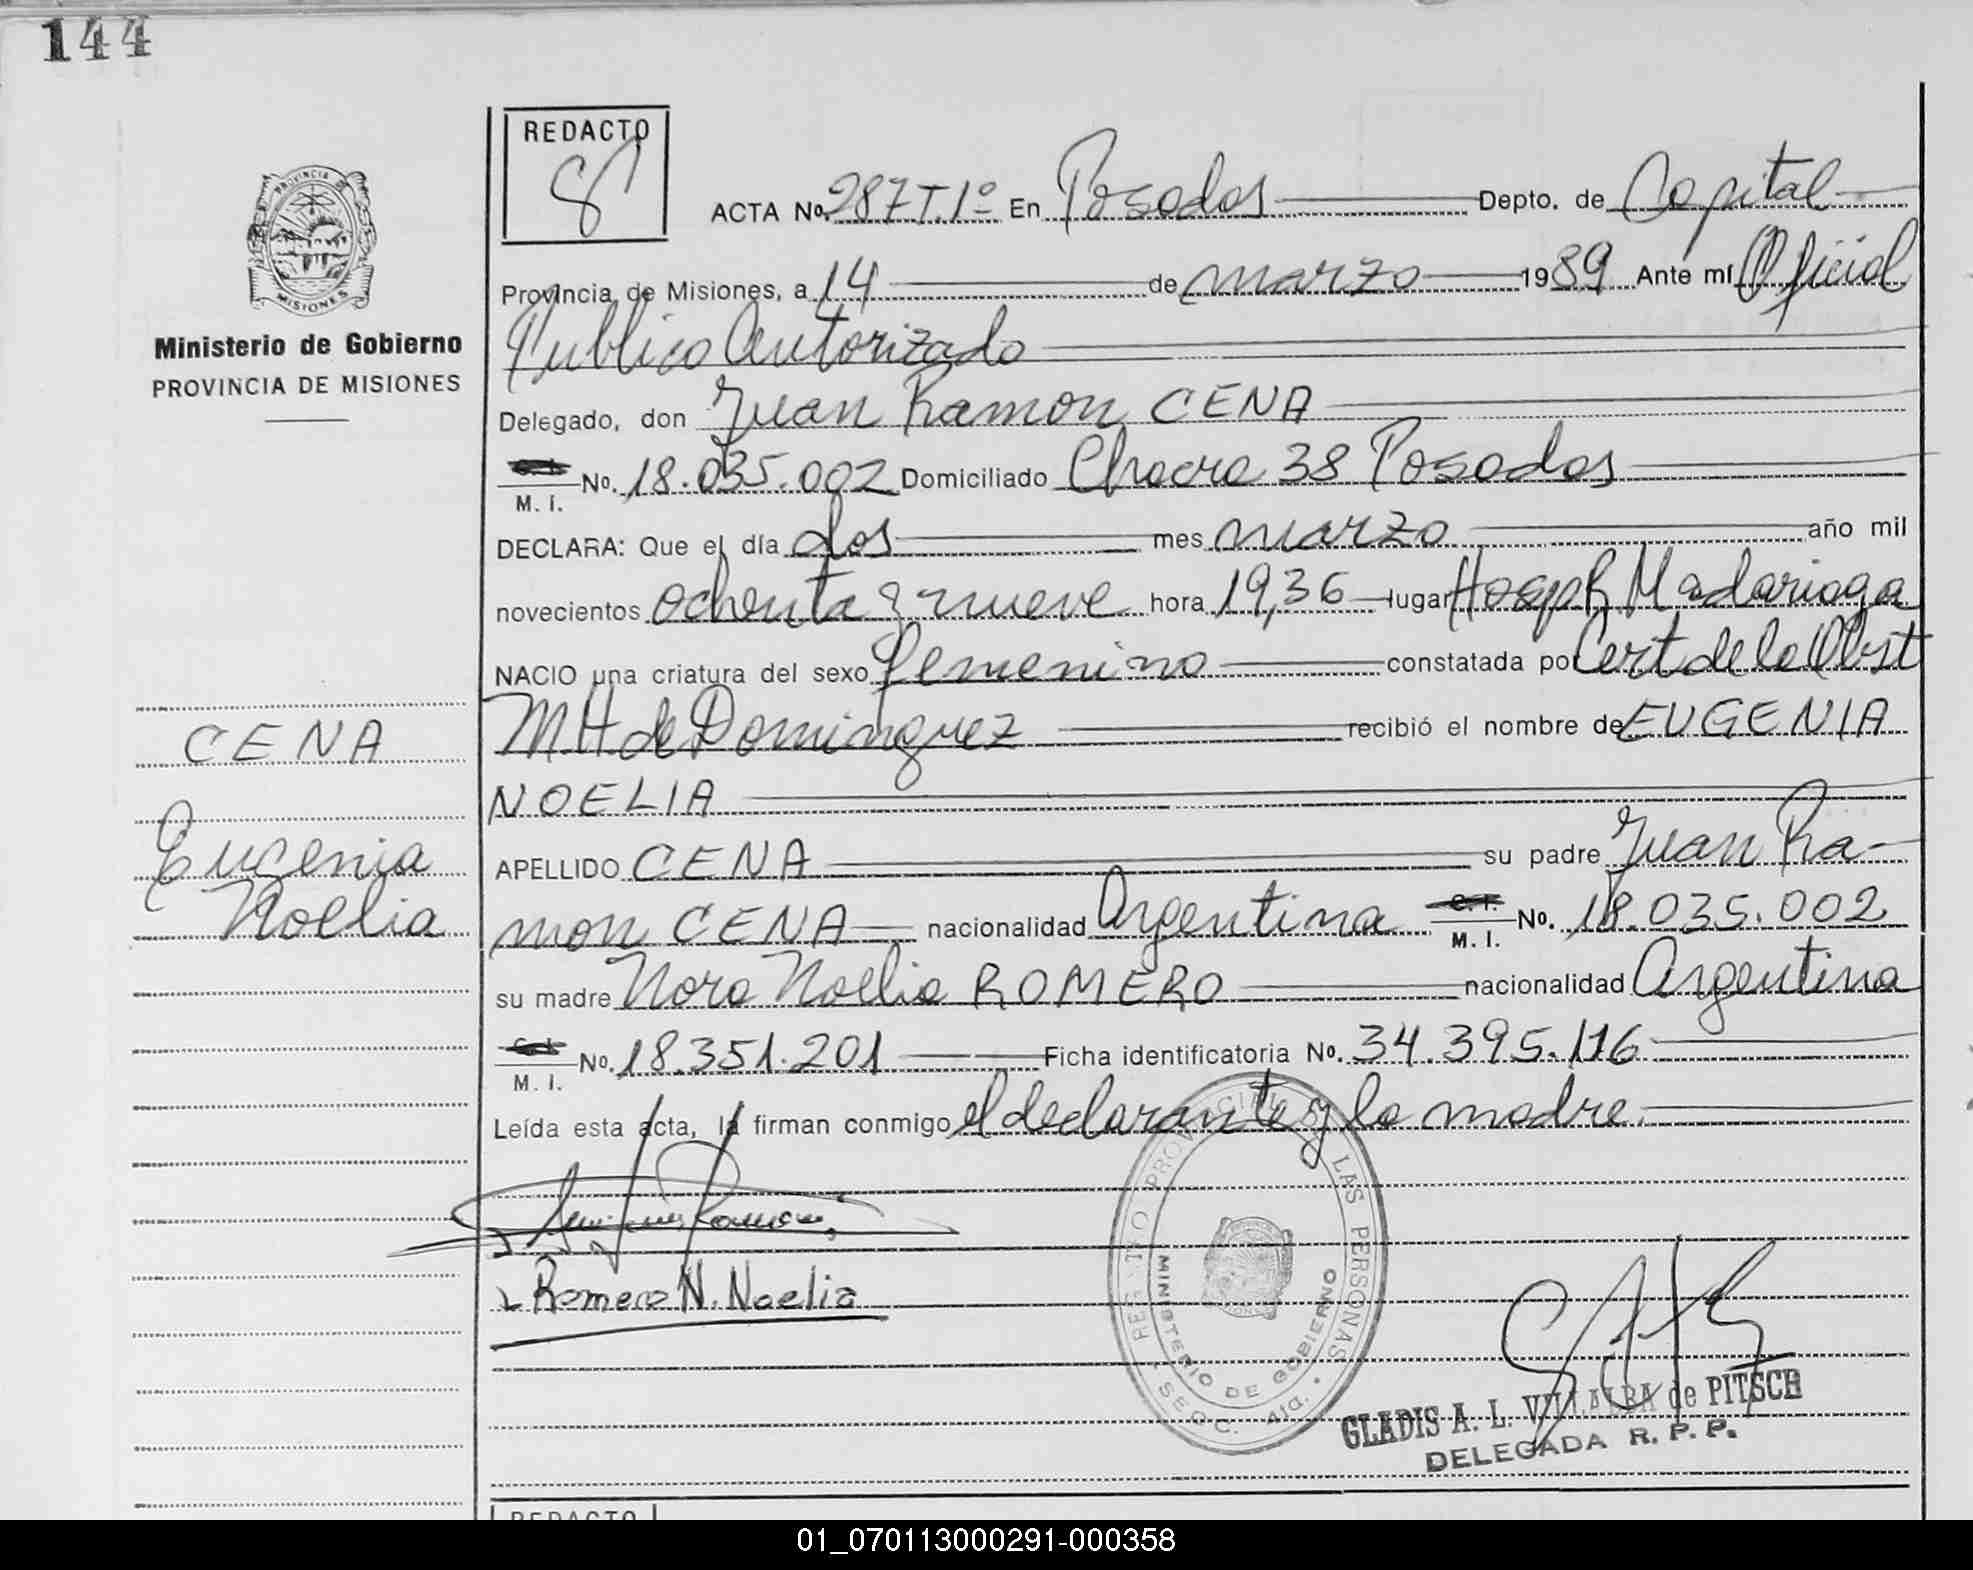 144
REDACTO
ACTA No. 287 T. 1º En Posadas Depto. de Capital
Provincia de Misiones, a 14 de marzo 1989 Ante mí Oficial
Publico Autorizado
Delegado, don Juan Ramon CENA
M. I. No. 18.035.002 Domiciliado Chacra 38 Posadas
DECLARA: Que el día dos mes marzo año mil
novecientos ochenta y nueve hora 19,36 lugar Hosp. R. Madariaga
NACIO una criatura del sexo femenino constatada por Cert de la Obst
M H de Dominguez recibió el nombre de EUGENIA
NOELIA
APELLIDO CENA su padre Juan Ra-
mon CENA nacionalidad Argentina C. I. M. I. No. 18.035.002
su madre Nora Noelia ROMERO nacionalidad Argentina
M. I. No. 18.351.201 Ficha identificatoria No. 34.395.116
Leída esta acta, la firman conmigo el declarante y la madre.
Romero N. Noelia
PROVINCIA DE
MISIONES
Ministerio de Gobierno
PROVINCIA DE MISIONES
CENA
Eugenia
Noelia
REGISTRO PROVINCIAL DE LAS PERSONAS
MINISTERIO DE GOBIERNO
SECC. 4ta.
GLADIS A. L. VILLALBA de PITSCH
DELEGADA R. P. P.
REDACTO
01_070113000291-000358